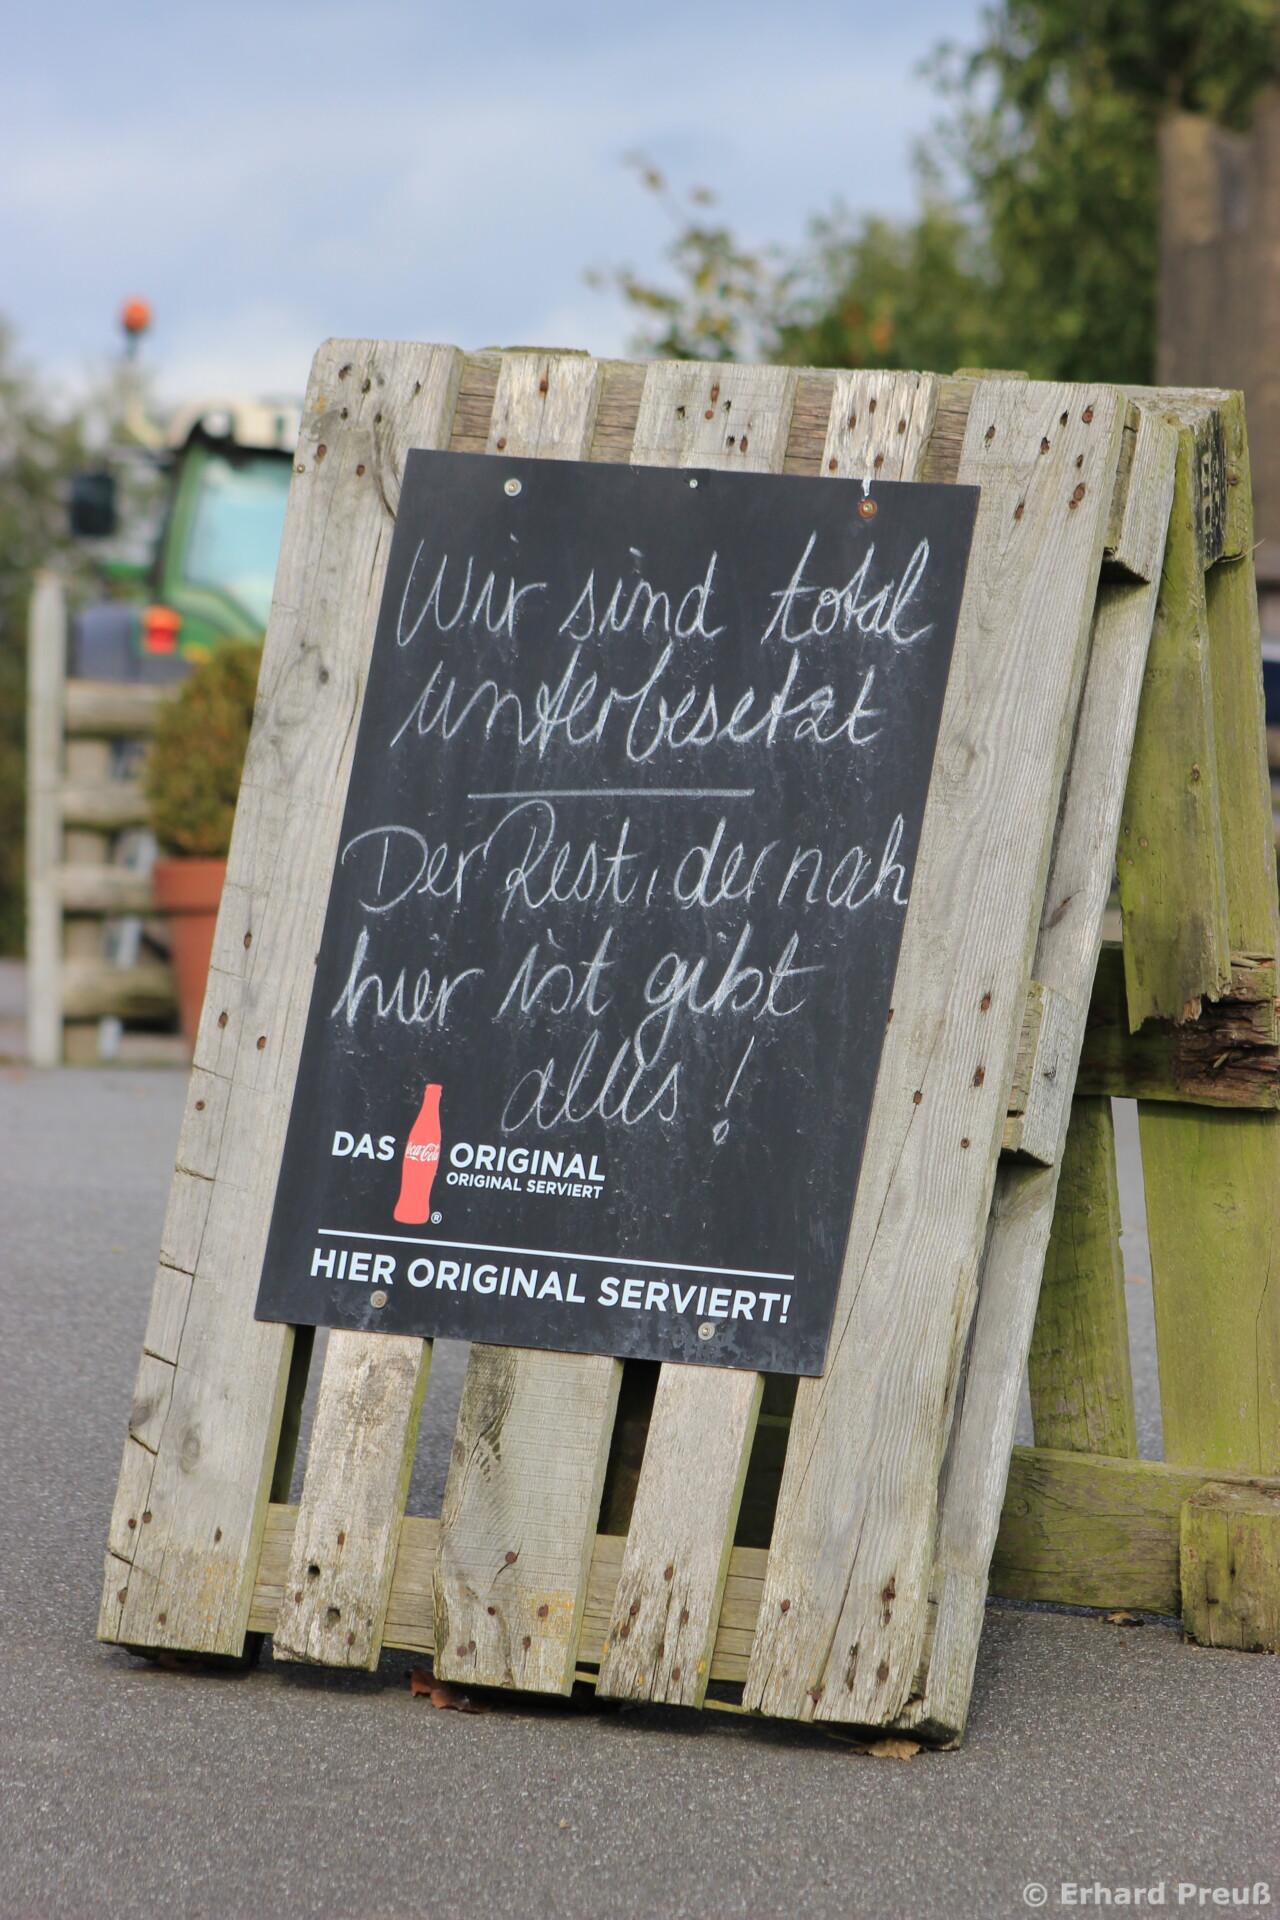 Wir sind total
unterbesetzt
Der Rest, der noch
hier ist gibt
alles!
DAS Coca-Cola ® ORIGINAL
ORIGINAL SERVIERT
HIER ORIGINAL SERVIERT!
© Erhard Preuß